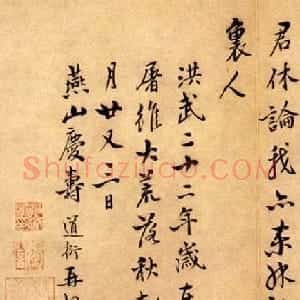 君休論我亦東
裏人
洪武二十二年歲在
屠維大荒落秋
月廿又二日
燕山慶壽道衍再
Shufaziliao.com